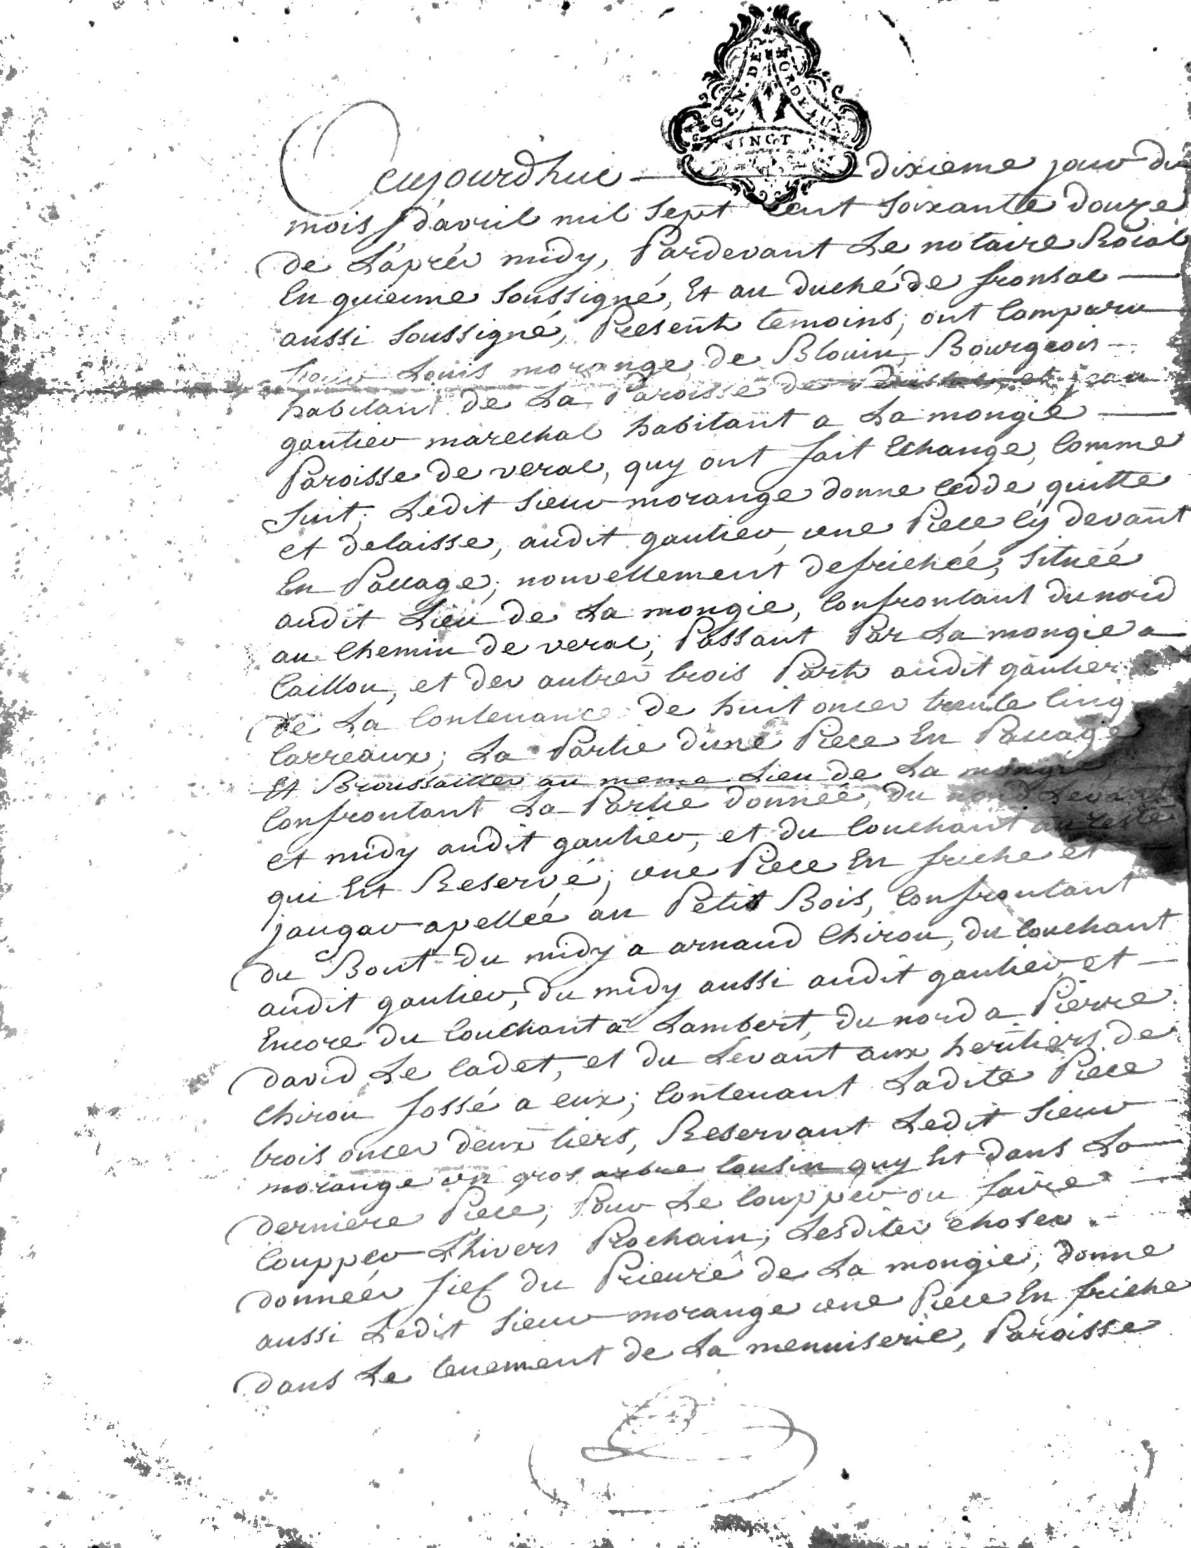 GEN. DE BORDEAUX
VINGT
aujourdhui dixieme jour du
mois d'avril mil sept cent soixante douze
de L'aprés midy, Pardevant Le notaire Roial
En guienne soussigné, Et au duché de fronsac
aussi soussigné, Presents temoins, ont Comparu
sieur Louis morange de Blouin, Bourgeois
habitant de La Paroisse de et jean
gautier marechal habitant a La mongie
Paroisse de verac, quy ont fait Echange, Comme
suit; Ledit sieur morange donne cedde, quitte
et delaisse, audit gautier, une Piece cy devant
En Paccage, nouvellement defrichéé, situéé
audit Lieu de La mongie, Confrontant du nord
au Chemin de verac, Passant Par La mongie a
Caillou, et des autres trois Parts audit gautier
de La Contenance de huit onces trente Cinq
Carreaux; La Partie d'une Piece En Paccage
Et Broussailles au meme Lieu de La mongie
Confrontant La Partie donnéé, du nord Levant
et midy audit gautier, et du Couchant au reste
qui Est Reservé; une Piece En friche et
jaugar apelléé au Petit Bois, Confrontant
du Bout du midy a arnaud Chirou, du Couchant
audit gautier, du midy aussi audit gautier, et
Encore du Couchant a Lambert, du nord a Pierre
david Le Cadet, et du Levant aux heritiers de
Chirou fossé a eux; Contenant Ladite Piece
trois onces deux tiers, Reservant Ledit sieur
morange un gros arbre quy Est dans La
derniere Piece, Pour Le Coupper ou faire
Coupper L'hivers Prochain; Lesdites choses
donnéés fief du Prieuré de La mongie, donne
aussi Ledit sieur morange une Piece En friche
dans Le tenement de La menuiserie, Paroisse